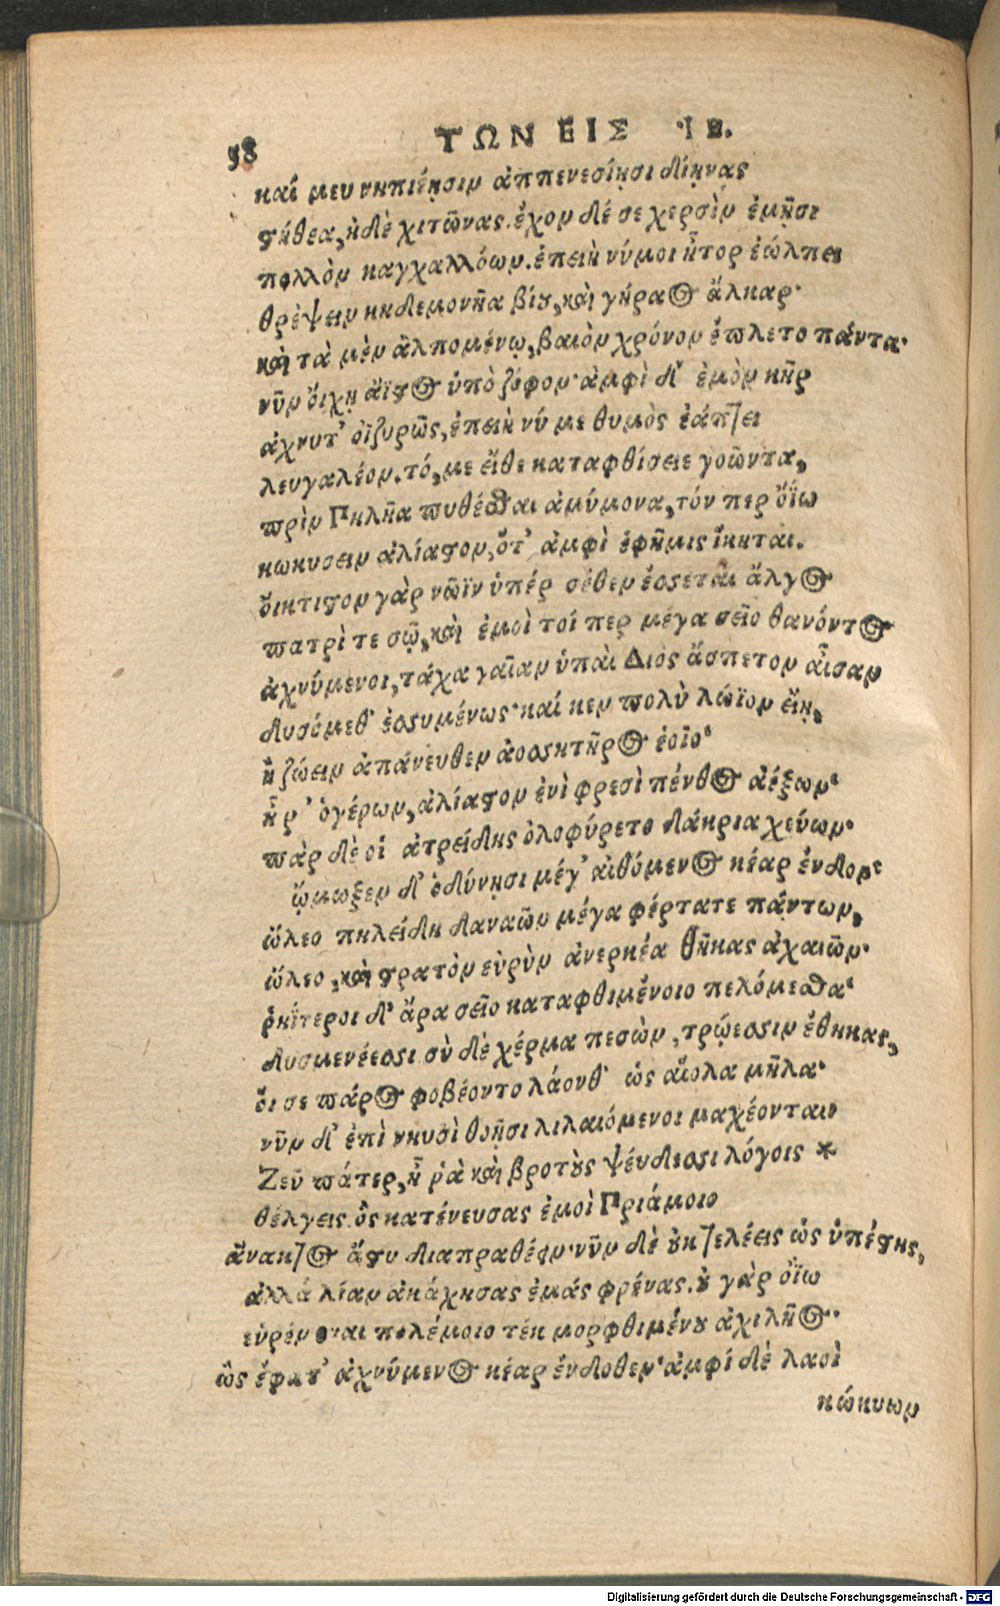 98
ΤΩΝ ΕΙΣ ΙΒ.
καί μευ νηπιέῃσιν ἀππενεσίῃσι δίῃνας
στήθεα, ἠδὲ χιτῶνας. ἔχον δέ σε χερσὶν ἐμῇσι
πολλὸν καγχαλλόων. ἐπειὴ νύμοι ἦτορ ἐώλπει
θρέψειν κηδεμονῆα βίου, καὶ γήραος ἄλκαρ·
καὶ τὰ μὲν ἀλπομένῳ, βαιὸν χρόνον ἔπλετο πάντα·
νῦν οἴχῃ ἄϊστος ὑπὸ ζόφον· ἀμφὶ δ' ἐμὸν κῆρ
ἀχνυτ' οἰζυρῶς, ἐπειὴ νύ με θυμὸς ἐάπτει
λευγαλέον. τό, με εἴθε καταφθίσειε γοῶντα,
πρὶν Πηλῆα πυθέσθαι ἀμύμονα, τόν περ οἴω
κωκυσειν ἀλίαστον, ὅτ' ἀμφὶ ἐφῆμις ἵκηται.
οἴκτιστον γὰρ νῶϊν ὑπέρ σέθεν ἔσσεται ἄλγος
πατρὶ τε σῷ, καὶ ἐμοὶ τοί περ μέγα σεῖο θανόντος
ἀχνύμενοι, τάχα γαῖαν ὑπαὶ Διὸς ἄσπετον αἶσαν
δυσόμεθ' ἐσσυμένως· καί κεν πολὺ λώϊον εἴη,
ἢ ζώειν ἀπάνευθεν ἀοσσητῆρος ἑοῖο·
ἦ ῥ' ὁγέρων, ἀλίαστον ἐνὶ φρεσὶ πένθος ἀέξων·
πὰρ δὲ οἱ ἀτρείδης ὀλοφύρετο δάκρια χεύων·
ᾤμωξεν δ' ὀδύνῃσι μέγ' αἰθόμενος κέαρ ἔνδον·
ὤλεο πηλείδη δαναῶν μέγα φέρτατε πάντων,
ὤλεο, καὶ στρατὸν εὐρὺν ἀνερκέα θῆκας ἀχαιῶν·
ῥηΐτεροι δ' ἄρα σεῖο καταφθιμένοιο πελόμεσθα·
δυσμενέεσσι σὺ δὲ χέρμα πεσὼν, τρώεσσιν ἔθηκας,
οἵ σε πάρος φοβέοντο λάονθ' ὡς αἴολα μῆλα·
νῦν δ' ἐπὶ νηυσὶ θοῇσι λιλαιόμενοι μαχέονται
Ζεῦ πάτερ, ἦ ῥὰ καὶ βροτοὺς ψεύδεσσι λόγοις *
θέλγεις. ὃς κατένευσας ἐμοὶ Πριάμοιο
ἄνακτος ἄστυ διαπραθέειν· νῦν δὲ οὐκ τελέεις ὡς ὑπέστης,
ἀλλὰ λίαν ἀκάχησας ἐμάς φρένας. οὐ γὰρ οἴω
εὑρέμεναι πολέμοιο τέκμορφθιμένου ἀχιλῆος·
ὣς ἔφατ' ἀχνύμενος κέαρ ἔνδοθεν· ἀμφὶ δὲ λαοὶ
κώκυων
Digitalisierung gefördert durch die Deutsche Forschungsgemeinschaft - DFG